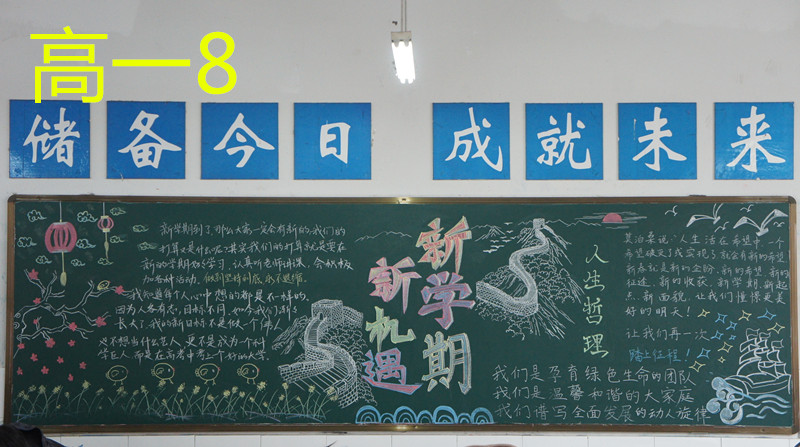 高一8
储备今日 成就未来
新学期到了,那么大家一定会有新的
我们的打算
新的学期好好学习,认真听老师讲课,积极
加各种活动。
我知道每个人心中想的都是不一样的,
因为人各有志,目标不同,
长大了,我的新目标不是做一个
不想当什么艺人,更不是成为一个科
学巨人,而是在高考中考上一个好的大学。
新学期
新机遇
人生哲理
人生活在希望中,一个
希望破灭了或实现了,就会有新的希望
新春就是新的企盼、新的希望、新的
征途、新的收获、新学期、新起
点、新面貌,让我们憧憬更美
好的明天!
让我们再一次
踏上征程!
我们是孕育绿色生命的团队
我们是温馨和谐的大家庭
我们谱写全面发展的动人旋律